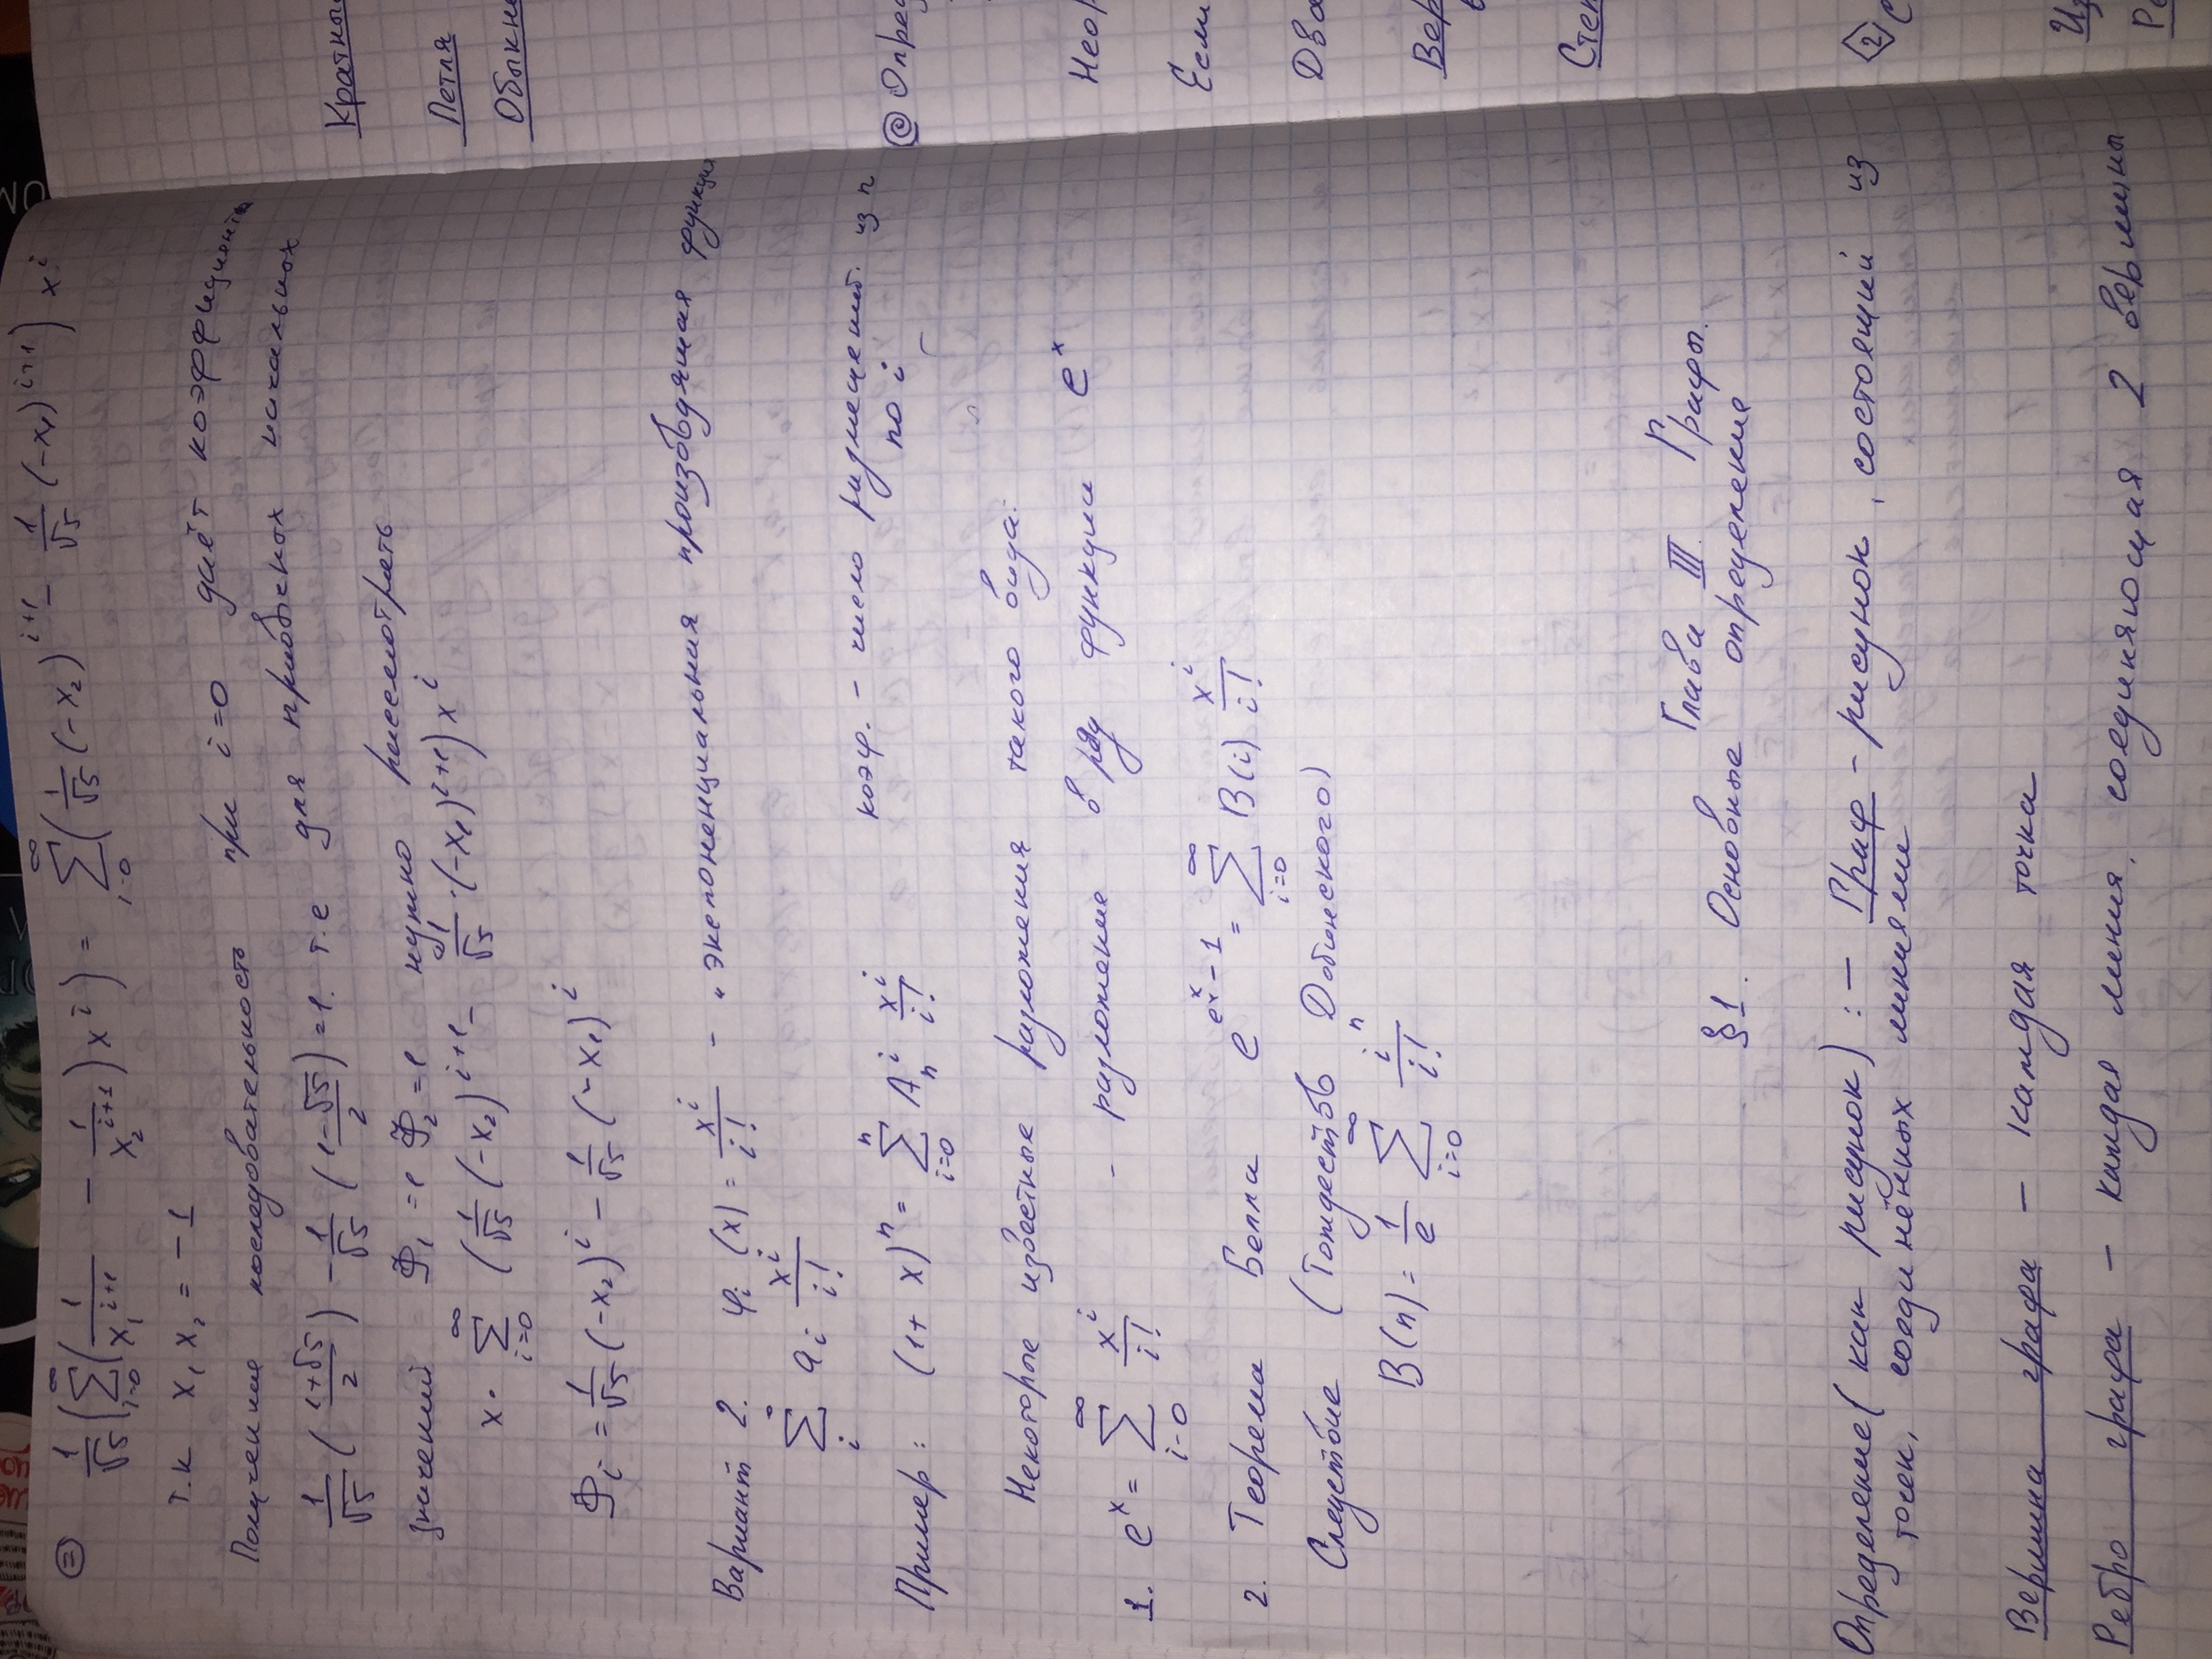 ⊜ 1/√5 (∑_{i=0}^{∞} (1/x₁^{i+1} − 1/x₂^{i+1}) x^i) = ∑_{i=0}^{∞} (1/√5 (−x₂)^{i+1} − 1/√5 (−x₁)^{i+1}) x^i
т.к x₁ x₂ = −1
Полученние последовательность при i=0 даёт коэффициенты
1/√5 ((1+√5)/2) − 1/√5 ((1−√5)/2) = 1. т.е для привычных начальных
значений Ф₁ = 1 Ф₂ = 1 нужно рассмотрать
x · ∑_{i=0}^{∞} (1/√5 (−x₂)^{i+1} − 1/√5 · (−x₁)^{i+1}) x^i
Фᵢ = 1/√5 (−x₂)^i − 1/√5 (−x₁)^i
Вариант 2. φᵢ (x) = x^i/i! – "экспоненциальная производящая функция
∑_{i}^{∞} aᵢ x^i/i!
Пример: (1+ x)^n = ∑_{i=0}^{n} A_n^i x^i/i! коэф. – число размещений. из n
по i
Некоторые известные разложения такого вида:
1. e^x = ∑_{i=0}^{∞} x^i/i! – разложение в ряд функции e^x
2. Теорема Белла e^{e^x−1} = ∑_{i=0}^{∞} B(i) x^i/i!
Следствие (Тождеств Добинского)
B(n) = 1/e ∑_{i=0}^{∞} i^n/i!
Глава III. Графы.
§1. Основные определение
Определение( как рисунок) : – Граф – рисунок, состоящий из
точек, соединённых линиями
Вершина графа – каждая точка
Ребро графа – каждая линия, соединяющая 2 вершины
Кратны
Петля
Обыкн
Опред
Неор
Если
Два
Вер
в
Степ
2
С
Из
Ре